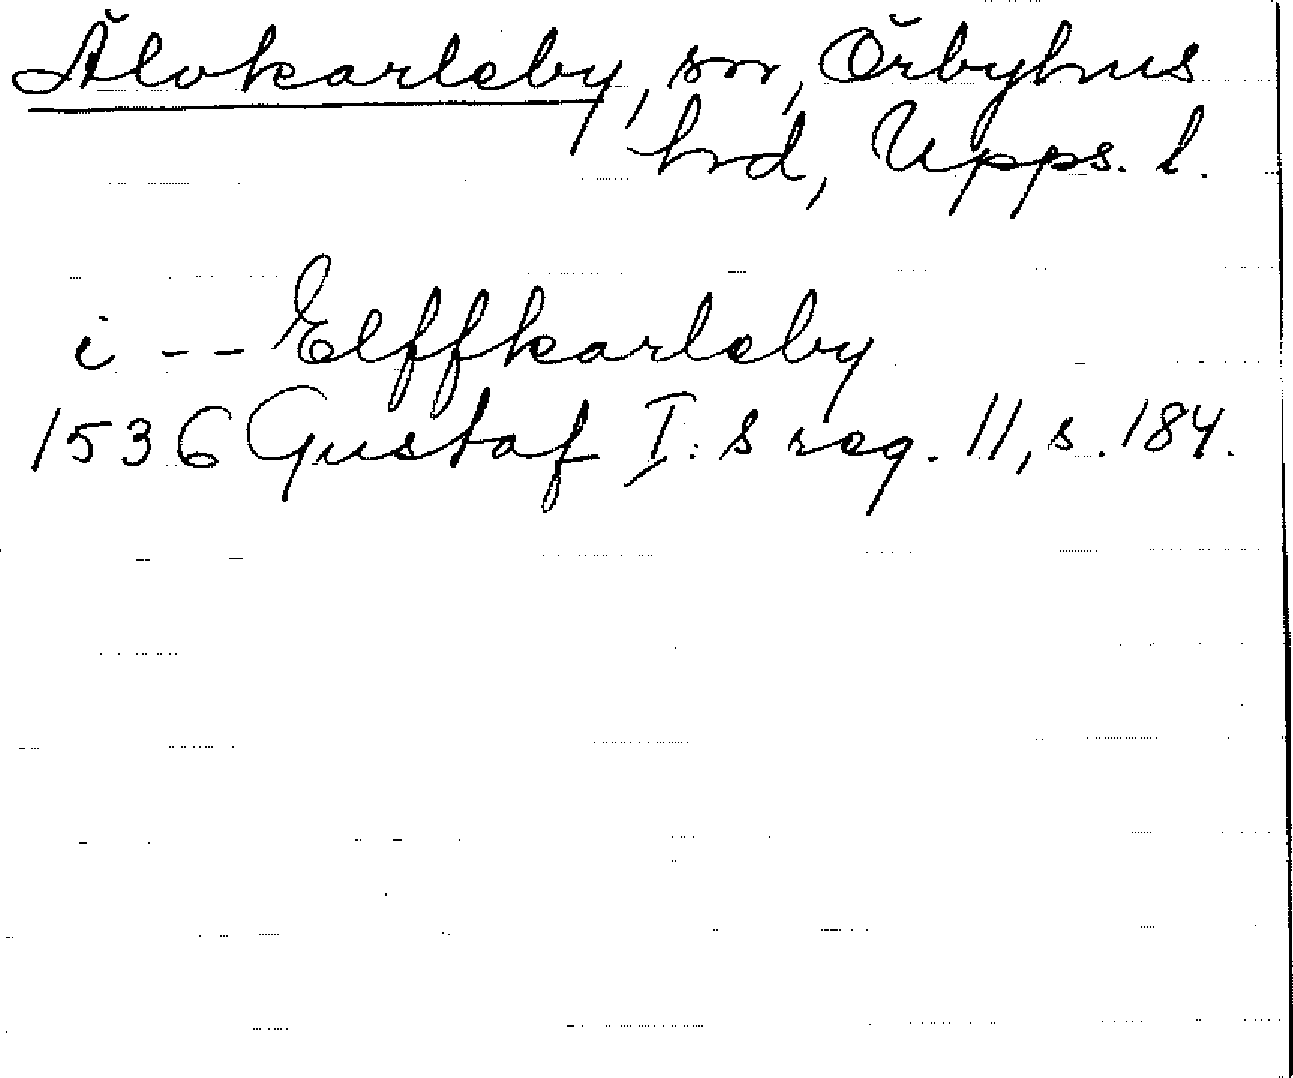 Älvkarleby, sn, Örbyhus
hrd, Upps. l.
i -- Elffkarleby
1536 Gustaf I:s reg. 11, s. 184.